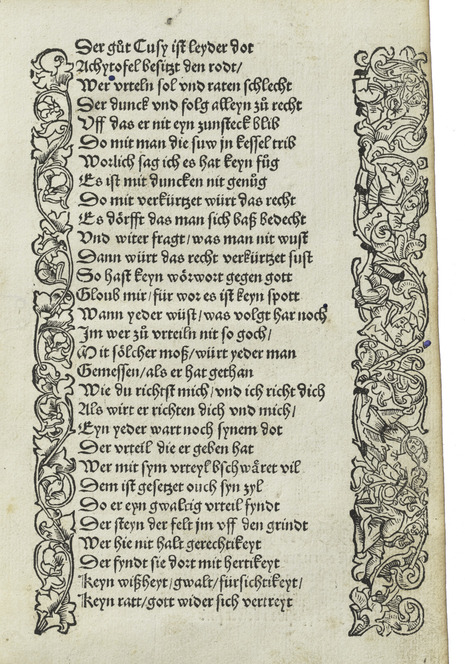 Der gůt Cusy ist leyder dot
Achytofel besitzt den rodt/
Wer vrteln sol vnd raten schlecht
Der dunck vnd folg alleyn zů recht
Vff das er nit eyn zunsteck blib
Do mit man die suw jn kessel trib
Worlich sag ich es hat keyn fůg
Es ist mit duncken nit genůg
Do mit verkürtzet würt das recht
Es dörfft das man sich baß bedecht
Vnd witer fragt/was man nit wust
Dann würt das recht verkürtzet sust
So hast keyn wörwort gegen gott
Gloub mir/für wor es ist keyn spott
Wann yeder wüst/was volgt har noch
Jm wer zů vrteiln nit so goch/
Mit sölcher moß/würt yeder man
Gemessen/als er hat gethan
Wie du richtst mich/vnd ich richt dich
Als wirt er richten dich vnd mich/
Eyn yeder wart noch synem dot
Der vrteil die er geben hat
Wer mit sym vrteyl bschwäret vil
Dem ist gesetzet ouch syn zyl
Do er eyn gwaltig vrteil fyndt
Der steyn der felt jm vff den grindt
Wer hie nit halt gerechtikeyt
Der fyndt sie dort mit hertikeyt
Keyn wißheyt/gwalt/fürsichtikeyt/
Keyn ratt/gott wider sich vertreyt